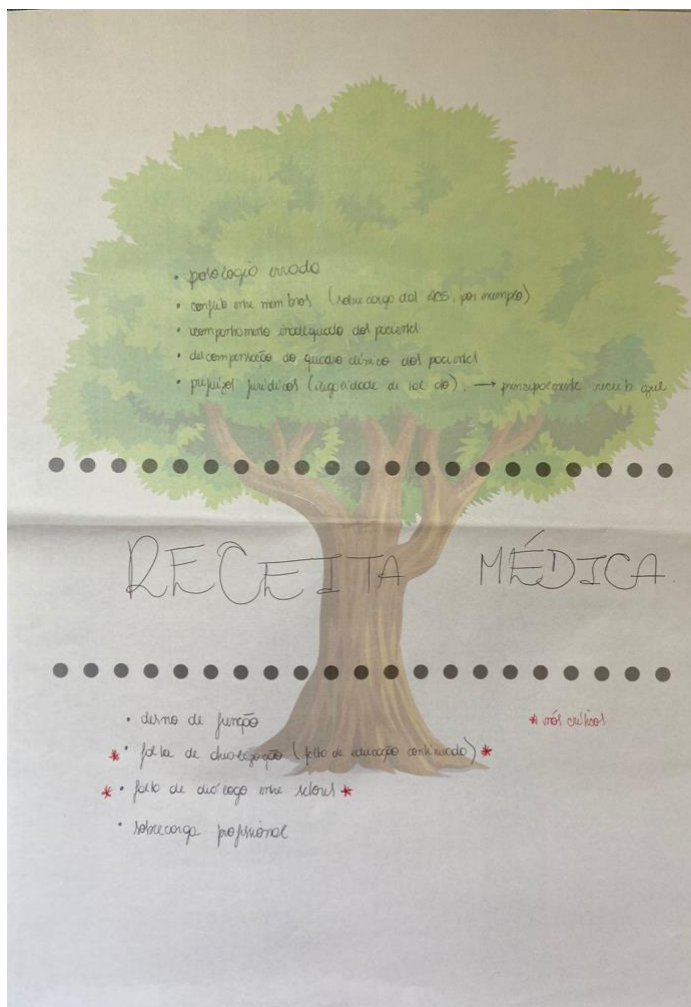 • posologia errada
• conflito entre membros (sobrecarga dos ACS, por exemplo)
• comportamento inadequado dos pacientes
• descompensação do quadro clínico dos pacientes
• prejuízos jurídicos (ilegalidade de tal ato). → principalmente receita azul
RECEITA MÉDICA
• desvio de função
* nós críticos
* • falta de divulgação (falta de educação continuada) *
* • falta de diálogo entre setores *
• sobrecarga profissional